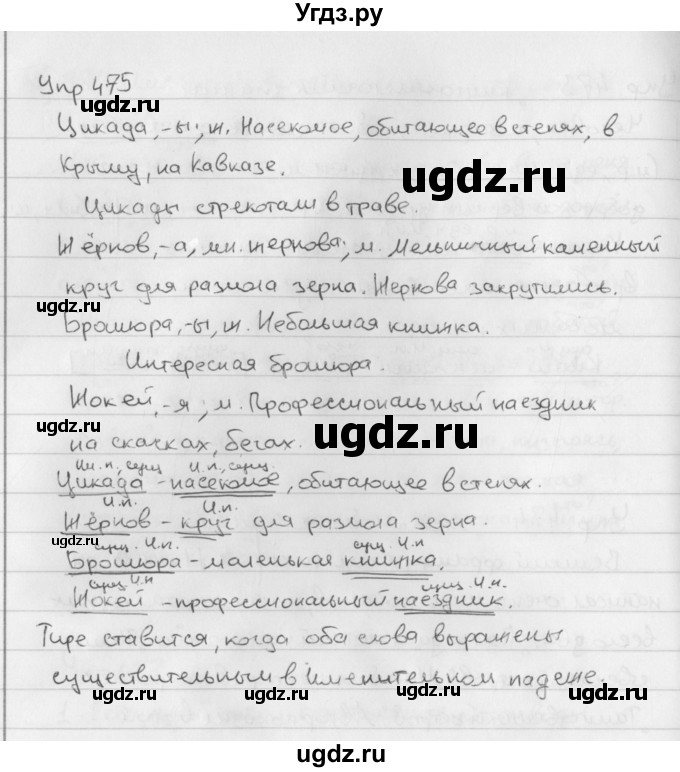 Угдз.ру
Упр 475
ugdz.ru
Цикада, -ы; ж. Насекомое, обитающее в степях, в
Крыму, на Кавказе.
ugdz.ru
Цикады стрекотали в траве.
Жёрнов, -а, мн. жернова; м. Мельничный каменный
круг для размола зерна. Жернова закрутились.
ugdz.ru
ugdz.ru
Брошюра, -ы, ж. Небольшая книжка.
Интересная брошюра.
Жокей, -я; м. Профессиональный наездник
ugdz.ru
ugdz.ru
на скачках, бегах.
Им.п., сущ И.п., сущ.
Цикада - насекомое, обитающее в степях.
И.п. И.п.
Жёрнов - круг для размола зерна.
ugdz.ru
ugdz.ru
сущ. И.п. сущ. И.п.
Брошюра - маленькая книжка.
сущ И.п сущ. И.п.
Жокей - профессиональный наездник.
Тире ставится, когда оба слова выражены
существительным в именительном падеже.
ugdz.ru
ugdz.ru
ugdz.ru
ugdz.ru
ugdz.ru